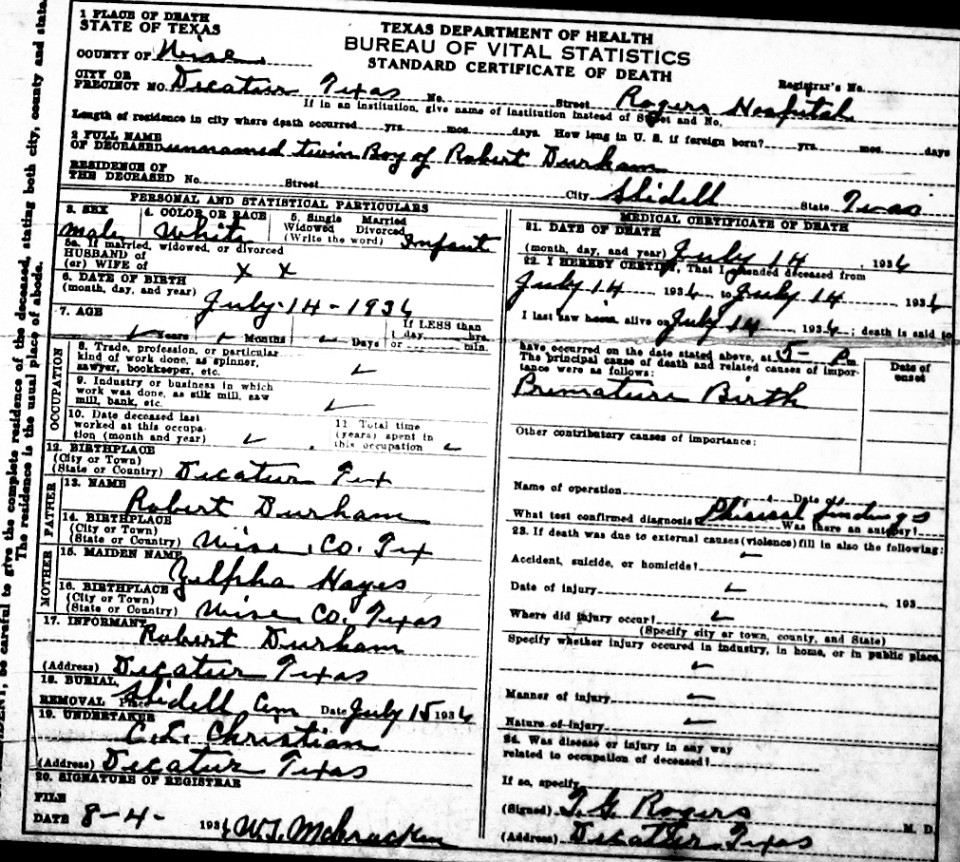 1 PLACE OF DEATH
STATE OF TEXAS
TEXAS DEPARTMENT OF HEALTH
BUREAU OF VITAL STATISTICS
STANDARD CERTIFICATE OF DEATH
COUNTY OF Wise
Registrar's No.
CITY OR
PRECINCT NO. Decatur Texas No. Street Rogers Hospital
If in an institution, give name of institution instead of Street and No.
Length of residence in city where death occurred yrs. mos. days. How long in U. S. if foreign born? yrs. mos. days
2 FULL NAME
OF DECEASED unnamed twin Boy of Robert Durham
RESIDENCE OF
THE DECEASED No. Street City Slidell State Texas
PERSONAL AND STATISTICAL PARTICULARS
3. SEX
Male
4. COLOR OR RACE
White
5. Single Married
Widowed Divorced
(Write the word) Infant
5a. If married, widowed, or divorced
HUSBAND of
(or) WIFE of x x
6. DATE OF BIRTH
(month, day, and year) July-14-1936
7. AGE
Years Months Days
If LESS than
1 day, hrs.
or min.
OCCUPATION
8. Trade, profession, or particular
kind of work done, as spinner,
sawyer, bookkeeper, etc.
9. Industry or business in which
work was done, as silk mill, saw
mill, bank, etc.
10. Date deceased last
worked at this occupa-
tion (month and year)
11 Total time
(years) spent in
this occupation
12. BIRTHPLACE
(City or Town)
(State or Country) Decatur Tex
FATHER
13. NAME
Robert Durham
14. BIRTHPLACE
(City or Town)
(State or Country) Wise, Co. Tex
MOTHER
15. MAIDEN NAME
Zelpha Hayes
16. BIRTHPLACE
(City or Town)
(State or Country) Wise Co. Texas
17. INFORMANT
Robert Durham
(Address) Decatur Texas
18. BURIAL,
REMOVAL Slidell Cem Date July 15 1936
19. UNDERTAKER
C. L. Christian
(Address) Decatur Texas
20. SIGNATURE OF REGISTRAR
FILE
DATE 8-4- 1936 W.T. McCracken
MEDICAL CERTIFICATE OF DEATH
21. DATE OF DEATH
(month, day, and year) July 14, 1936
22. I HEREBY CERTIFY, That I attended deceased from
July 14 1936, to July 14 1936
I last saw him alive on July 14 1936; death is said to
have occurred on the date stated above, at 5- P.m.
The principal cause of death and related causes of impor-
tance were as follows:
Date of
onset
Premature Birth
Other contributory causes of importance:
Name of operation Date of
What test confirmed diagnosis Phisical findings Was there an autopsy?
23. If death was due to external causes (violence) fill in also the following:
Accident, suicide, or homicide?
Date of injury , 193
Where did injury occur?
(Specify city or town, county, and State)
Specify whether injury occured in industry, in home, or in public place.
Manner of injury
Nature of injury
24. Was disease or injury in any way
related to occupation of deceased?
If so, specify
(Signed) T. G. Rogers M. D.
(Address) Decatur, Texas
be careful to give the complete residence of the deceased, stating both city, county and state.
The residence is the usual place of abode.